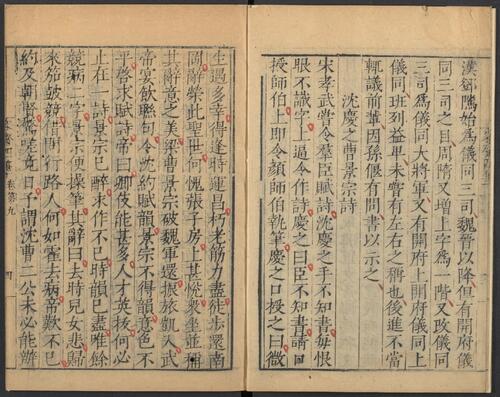 漢鄧隲始爲儀同三司魏晉以降但有開府儀
同三司之目周隋又增上字爲一階又改儀同
三司爲儀同大將軍又有開府儀同上
儀同班列益卑未嘗有左右之稱也後進不當
輒議前輩因孫偃有問書以示之
沈慶之曹景宗詩
宋孝武嘗令羣臣賦詩沈慶之手不知書每恨
眼不識字上逼令作詩慶之曰臣不知書請口
授師伯上即令顏師伯執筆慶之口授之曰微
生遇多幸得逢時運昌朽老筋力盡徒步還南
岡辭榮此聖世何愧張子房上甚恱衆坐並稱
其辭意之美梁曹景宗破魏軍還振旅凱入武
帝宴飲聯句令沈約賦韻景宗不得韻意色不
平啓求賦詩帝曰卿伎能甚多人才英拔何必
止在一詩景宗已醉求作不已時韻已盡唯餘
競病二字景宗便操筆其辭曰去時兒女悲歸
來笳鼓競借問行路人何如霍去病帝歎不已
約及朝賢驚嗟竟日予謂沈曹二公未必能辨
卷第九
四